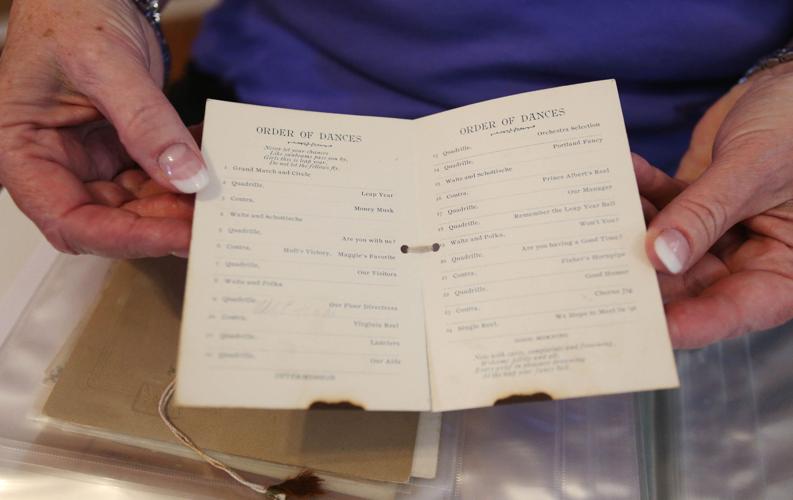 ORDER OF DANCES
Never let your chances
Like sunbeams pass you by,
Girls this is leap year,
Do not let the fellows fly.
1 Grand March and Circle
2 Quadrille, Leap Year
3 Contra, Money Musk
4 Waltz and Schottische
5 Quadrille, Are you with us?
6 Contra, Hull's Victory, Maggie's Favorite
7 Quadrille, Our Visitors
8 Waltz and Polka
9 Quadrille, Our Floor Directress
10 Contra, Virginia Reel
11 Quadrille, Lanciers
12 Quadrille, Our Aids
INTERMISSION
ORDER OF DANCES
13 Quadrille, Orchestra Selection
14 Quadrille, Portland Fancy
15 Waltz and Schottische
16 Contra, Prince Albert's Reel
17 Quadrille, Our Manager
18 Quadrille, Remember the Leap Year Ball
19 Waltz and Polka, Won't You?
20 Quadrille, Are you having a Good Time?
21 Contra, Fisher's Hornpipe
22 Quadrille, Good Humor
23 Contra, Chorus Jig
24 Single Reel, We Hope to Meet in '96
GOOD MORNING
Now with cares, complaints and frowning,
Welcome jollity and all,
Every grief in pleasure drowning
At the leap year fancy ball.